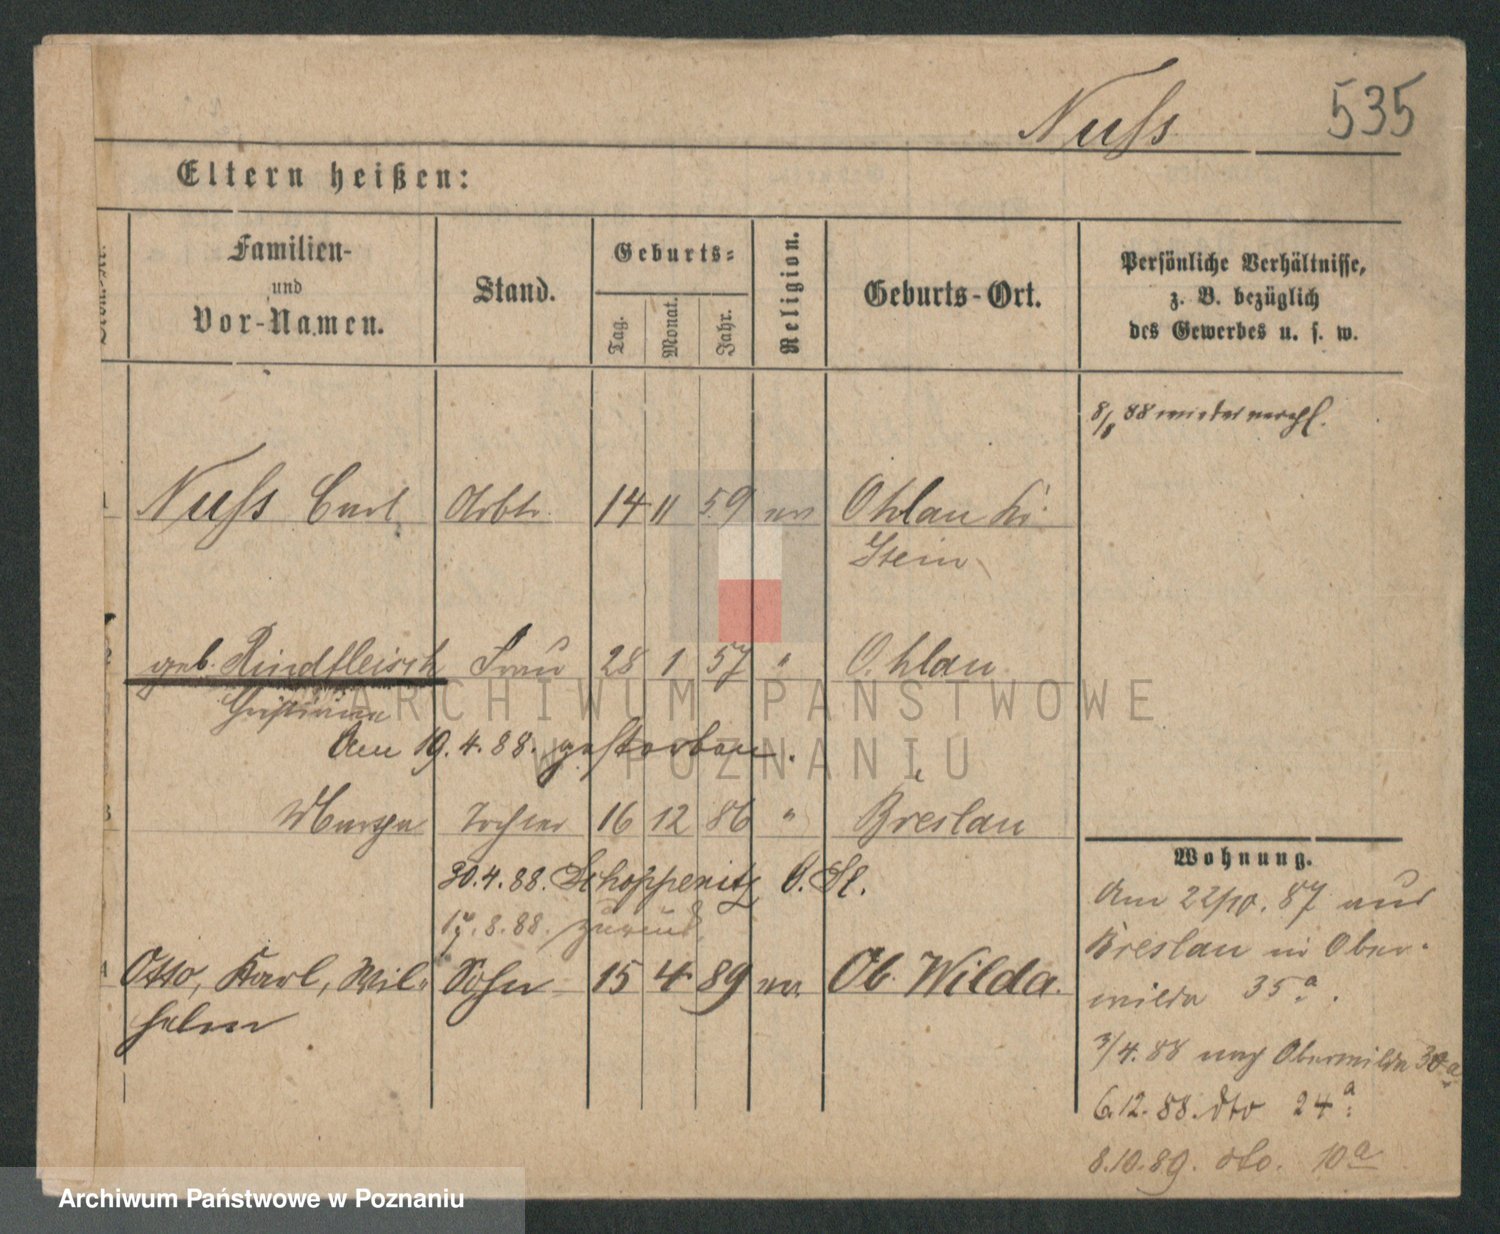 Nuss 535
Eltern heißen:
Familien-
und
Vor-Namen.
Stand.
Geburts-
Tag.
Monat.
Jahr.
Religion.
Geburts-Ort.
Persönliche Verhältnisse,
z. B. bezüglich
des Gewerbes u. s. w.
8/8 88 wieder verehl.
Nuss Carl Arbtr. 14 11 59 ev Ohlau Kr.
Stein
geb. Rindfleisch Frau 28 1 57 " Ohlau
Christiane
Am 19.4.88. gestorben.
Tochter 16 12 86 " Breslau
30.4.88. Schoppenitz O. Sl.
17.8.88. zurück
Otto, Karl, Wil- Sohn 15 4 89 ev. Ob. Wilda.
helm
Wohnung.
Am 22/10. 87 aus
Breslau in Ober-
wilda 35a.
3/4. 88 nach Oberwilda 30a
6.12.88. dto 24a.
8.10.89. dto. 10a
ARCHIWUM PAŃSTWOWE
W POZNANIU
Archiwum Państwowe w Poznaniu